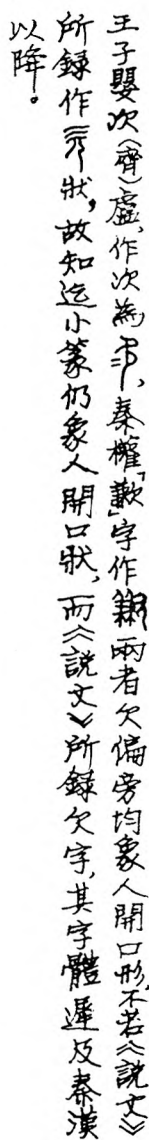 王子嬰次(齊)虘,作次為,秦權「歉」字作兩者欠偏旁均象人開口形,不若《說文》
所錄作狀,故知迄小篆仍象人開口狀,而《說文》所錄欠字,其字體遲及秦漢
以降。